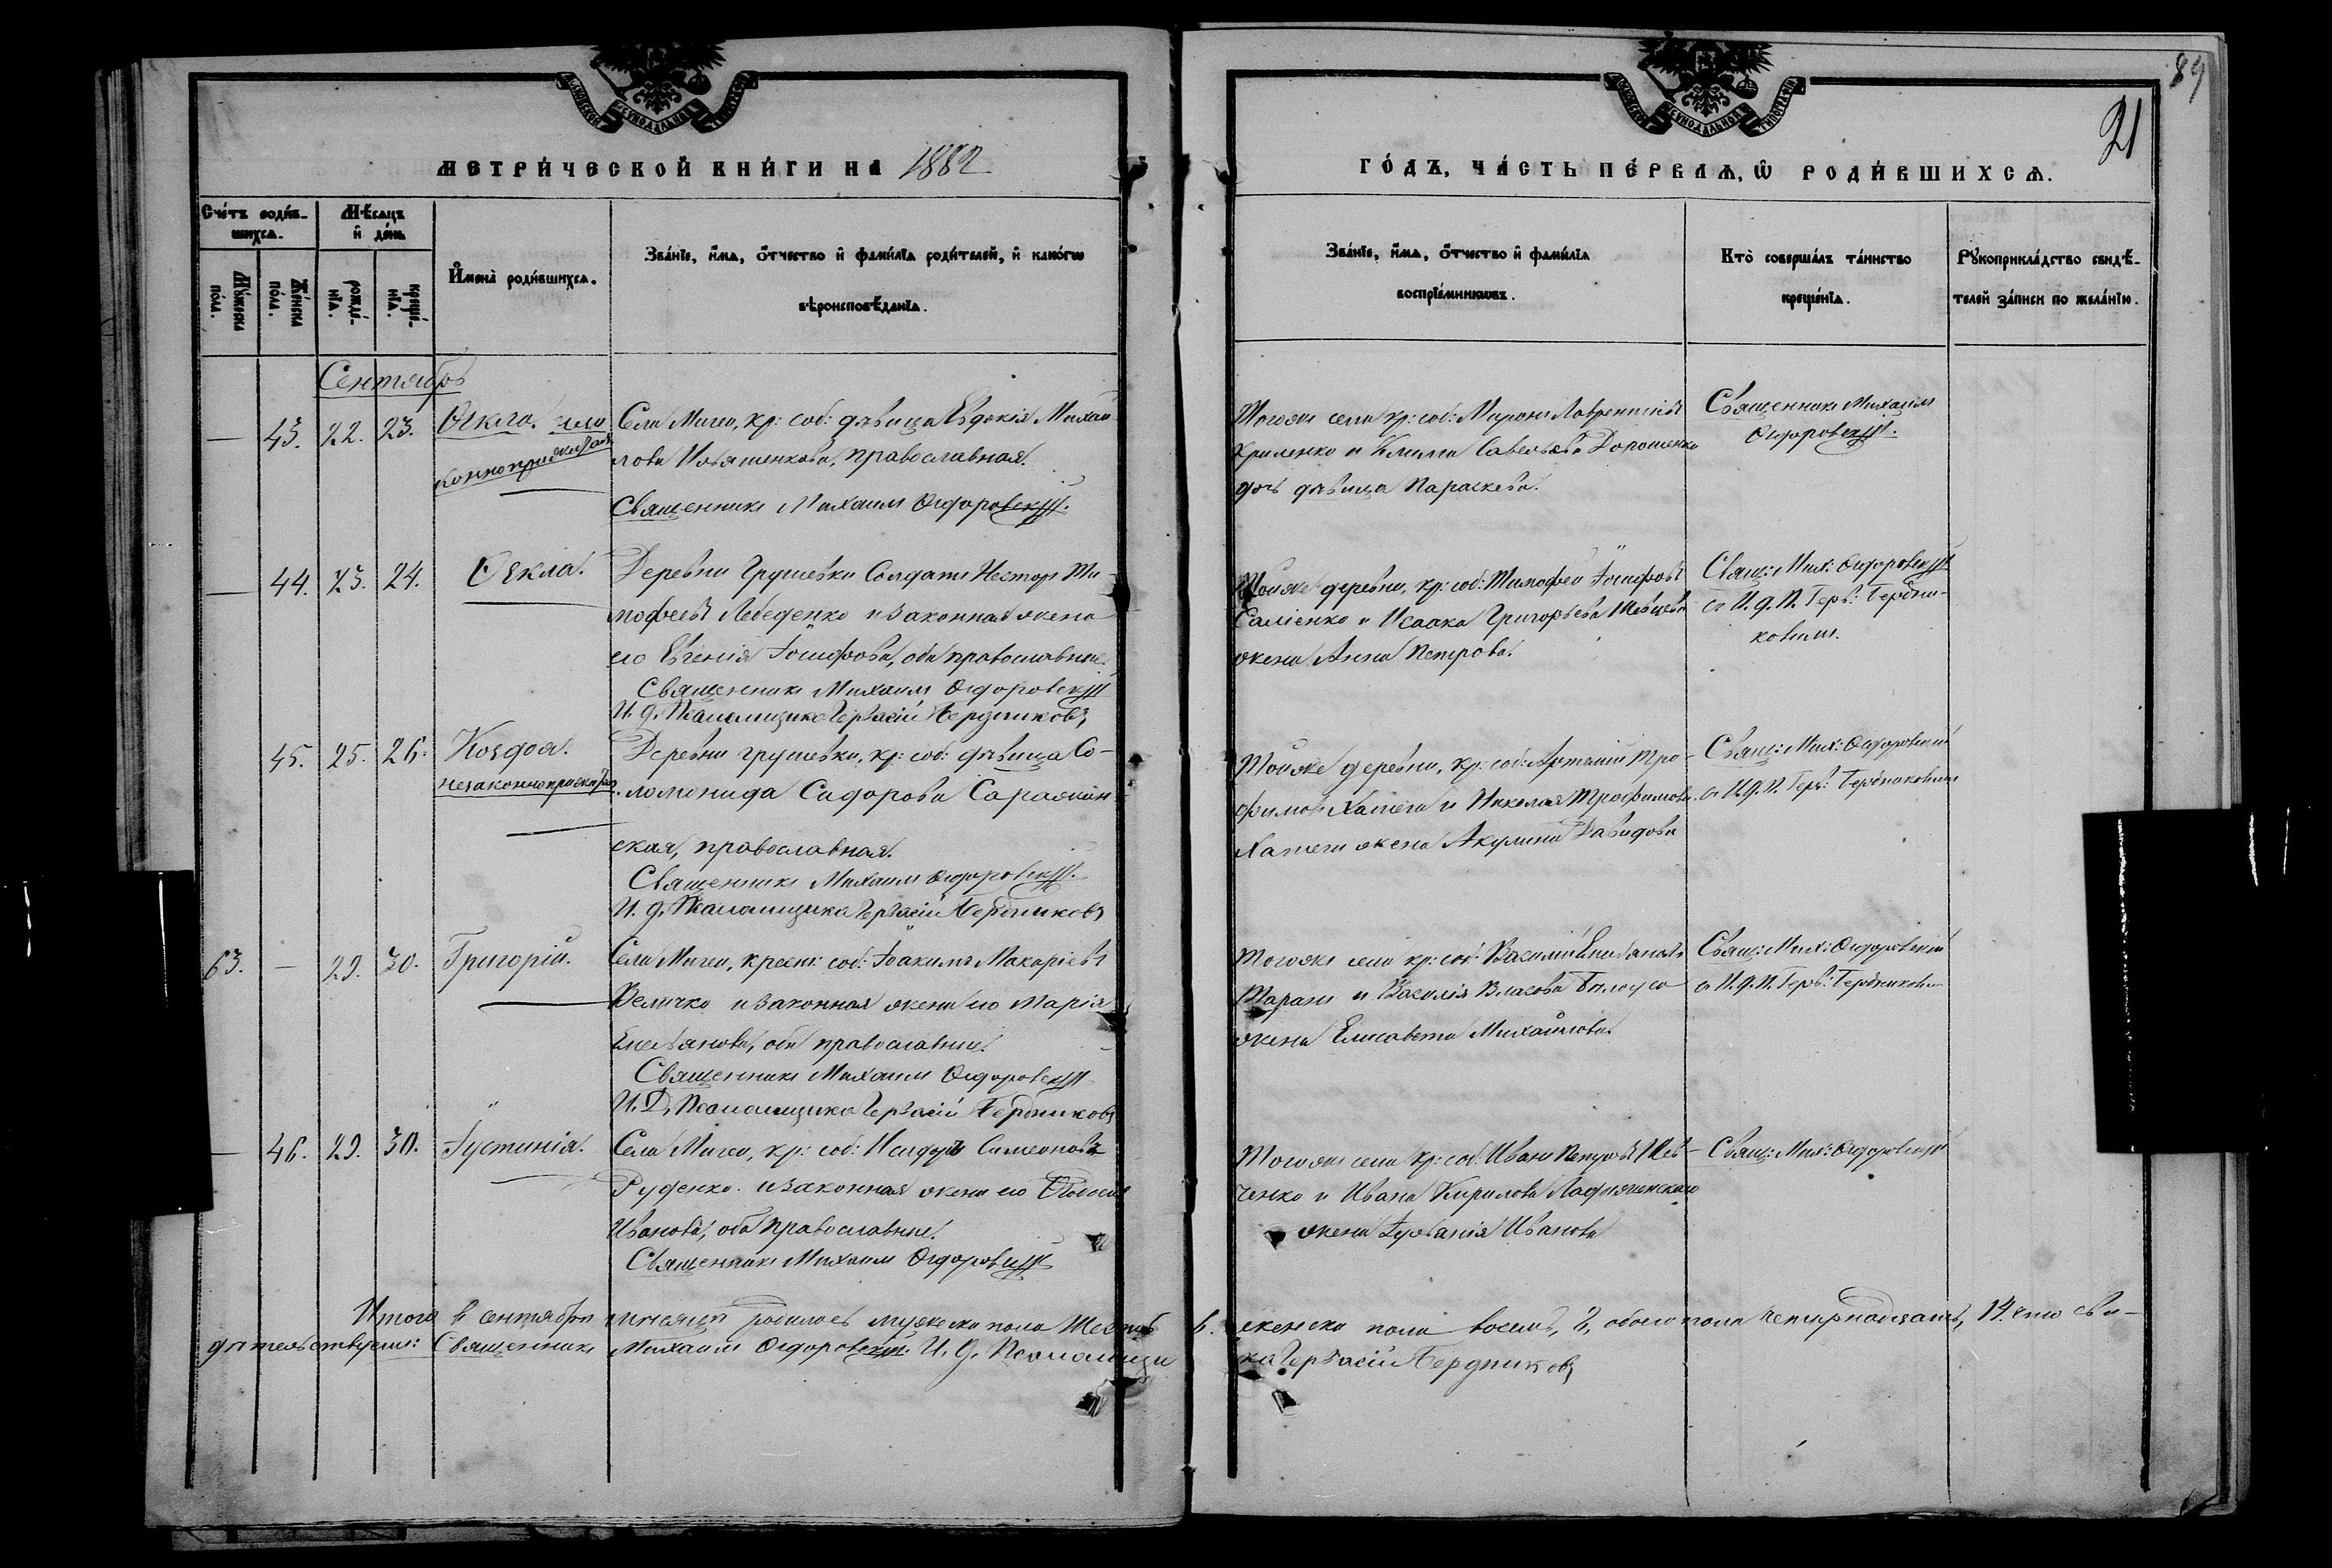 89
21
МЕТРИ́ЧЕСКОЙ КНИ́ГИ НА 1882
ГО́ДЪ, ЧА́СТЬ ПЕ́РВАѦ, Ѡ РОДИ́ВШИХСѦ.
Сче́тъ роди́в-
шихсѧ.
Мѣ́сѧцъ
и҆ де́нь
Мꙋ́жеска
по́ла.
Же́нска
по́ла.
рожде́-
нїѧ.
креще́-
нїѧ.
И҆мена̀ роди́вшихсѧ.
Зва́нїе, и҆́мѧ, ѻ҆́тчество и҆ фами́лїѧ роди́телей, и҆ како́гѡ
вѣроисповѣ́данїѧ.
Зва́нїе, и҆́мѧ, ѻ҆́тчество и҆ фами́лїѧ
воспрїе́мникѡвъ.
Кто̀ соверша́лъ та́инство
креще́нїѧ.
Рꙋкоприкла́дство свидѣ́-
телей за́писи по жела́нїю.
Сентябрь
— 43. 22. 23. Ѳекла.
Села Мигеи, кр: соб: дѣвица Евдокія Михаи
лова Ивашенкова, православная.
Священникъ Михаилъ Ѳедоровскій.
Тогоже села кр: соб: Миронъ Лаврентіевъ
Криленко и Климма Савельева Дорошенко
дочь дѣвица Параскева.
Священникъ Михаилъ
Ѳедоровскій.
— 44. 23. 24. Ѳекла.
Деревни Грушевки Солдатъ Несторъ Ти-
мофеевъ Лебеденко и законная жена
его Евгенія Іосифова, оба православные.
Священникъ Михаилъ Ѳедоровскій
И. д. Псаломщика Гервасій Бердниковъ
Тойже деревни, кр: соб: Тимофей Іосифовъ
и Исаака Григорьева
жена Анна Петрова.
Свящ: Мих: Ѳедоровскій
съ И. д. П. Герв: Бердни-
ковымъ.
45. 25. 26.
незаконнорожден.
Деревни Грушевки, кр: соб: дѣвица Со-
ломонида Сидорова
ская, православная.
Священникъ Михаилъ Ѳедоровскій.
И. д. Псаломщика Гервасій Бердниковъ
Тойже деревни, кр: соб: Артемій Тро-
фимовъ и Николая Трофимова
жена Акулина Давидова
Свящ: Мих: Ѳедоровскій
съ И. Д. П. Герв: Бердниковымъ
63. — 29. 30. Григорій.
Села Мигеи, крест: соб: Іоакимъ Макаріевъ
Величко и законная жена его Марія
Емельянова, оба православные.
Священникъ Михаилъ Ѳедоровскій
И. Д. Псаломщика Гервасій Бердниковъ
Тогоже села кр: соб: Василій
Таранъ и Василія Власова Билоуса
жена Елисавета Михайлова.
Свящ: Мих: Ѳедоровскій
съ И. Д. П. Герв: Бердниковымъ
— 46. 29. 30. Іустинія.
Села Мигеи, кр: соб: Исидоръ Симеоновъ
Руденко и законная жена его Ѳеодосія
Иванова, оба православные.
Священникъ Михаилъ Ѳедоровскій
Тогоже села кр: соб: Иванъ Петровъ Шев-
ченко и Ивана Кирилова
жена Иванова
Свящ: Мих: Ѳедоровскій
Итого в сентябрѣ мѣсяцѣ родилось мужеска пола шесть 6. женска пола восемь, 8, обоего пола четырнадцать, 14. что сви-
дѣтельствуемъ: Священникъ Михаилъ Ѳедоровскій. И. д. Псаломщи ка Гервасій Бердниковъ